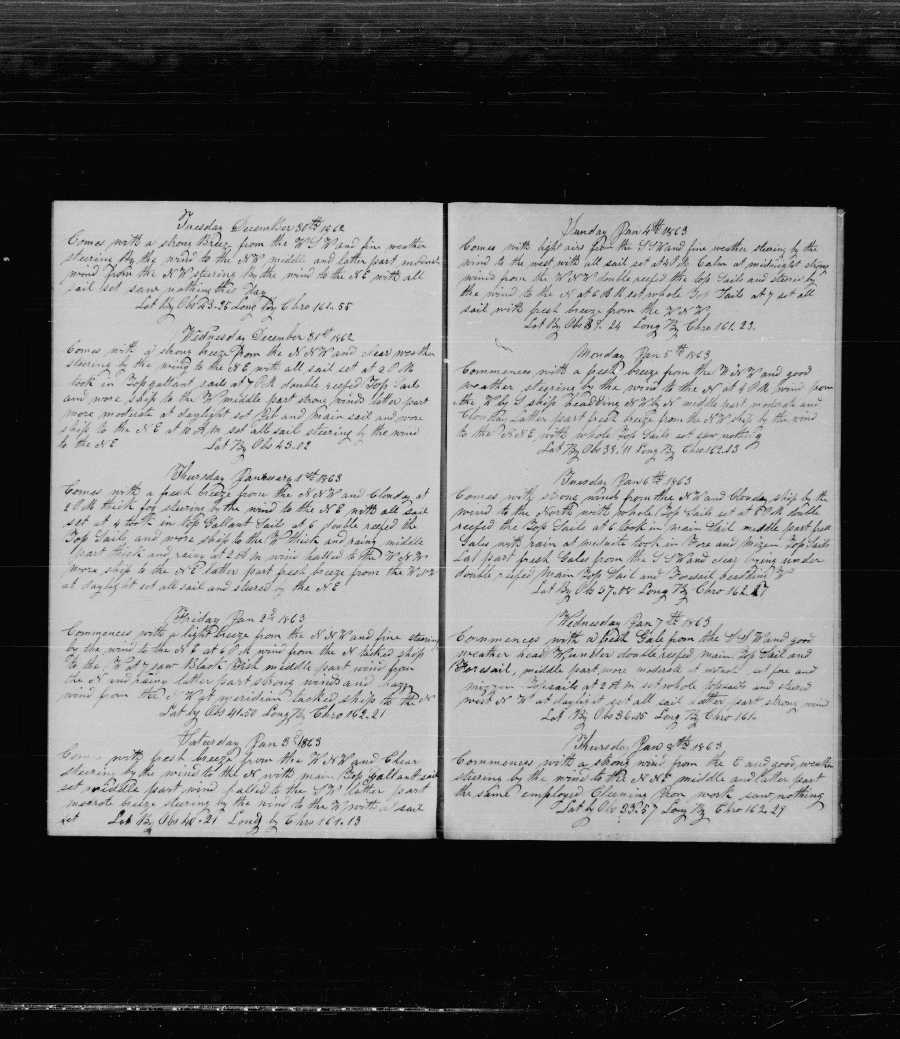 Tuesday December 30th 1862
Comes with a strong Breez from the W S W and fine weather
steering by the wind to the NW middle and latter part modrate
wind from the NW steering By the wind to the NE with all
sail set saw nothing this Day
Lat By Obs 43.25 Long By Chro 161.55
Wednesday December 31st 1862
Comes with a strong breeze from the N N W and clear weather
steering by the wind to the N E with all sail set at 2 P M
took in Topgallant sails at 7 P M double reefed Top Sails
and wore ship to the W middle part strong winds latter part
more moderate at daylight set Jib and main sail and wore
ship to the N E at 10 A,M set all sail steering by the wind
to the N E Lat By Obs 43.02
Thursday January 1st 1863
Comes with a fresh breeze from the N N W and Clouday at
2 P M thick fog steering by the wind to the N E with all sail
set at 4 took in top Gallant Sails at 6 double reefed the
Top Sails and wore ship to the W thick and rainy middle
part thick and rainy at 2 A M wind halled to the W N W
wore ship to the N E latter part fresh breeze from the W N W
at daylight set all sail and steered by the N E
Friday Jan 2d 1863
Commences with a light breeze from the N N W and fine steering
by the wind to the N E at 6 P M wind from the N tacked ship
to the W at 7 saw Black Fish middle part wind from
the N and rainy latter part strong winds and hazy
wind from the N W at meridian tacked ship to the N
Lat by Obs 41.50 Long By Chro 162.21
Saturday Jan 3d 1863
Comes with fresh breeze from the W N W and Clear
steering by the wind to the N with main Top Gallant sail
set middle part wind halled to the S W latter part
modrate breeze steering by the wind to the W with a sail
set Lat By Obs 40.21 Long by Chro 161.13
Sunday Jan 4th 1863
Comes with light airs from the S S W and fine weather steering by the
wind to the west with all sail set at 4 P.M. Calm at midnight strong
winds from the W N W double reefd the top Sails and steered by
the wind to the N at 6 A M set whole Top Sails at 7 set all
sail with fresh breeze from the W N W
Lat By Obs 39.24 Long By Chro 161.23.
Monday Jan 5th 1863
Commences with a fresh breeze from the W N W and good
weather steering by the wind to the N at 4 P M wind from
the W by S ship headding N W by N middle part moderate and
Clouday Latter part fresh breeze from the N W ship by the wind
to the N N E with whole Top Sails set saw nothing
Lat By Obs 38.11 Long By Chro 162.13
Tuesday Jan 6th 1863
Comes with strong winds from the N W and Clouday ship by the
wind to the North with whole Top Sails set at 5 P M double
reefed the Top Sails at 6 took in main Sail middle part fresh
Gales with rain at midnite took in Fore and Mizen Top Sails
Lat part fresh Gales from the S S W and clear lying under
double reefed Main Top Sail and Foresail headding W
Lat By Obs 37.08 Long By Chro 162.17
Wednesday Jan 7th 1863
Commences with a fresh Gale from the S S W and good
weather head W under double reefed main Top Sail and
Foresail, middle part more modrate at set fore and
mizzen Topsails at 2 A M set whole topsails and steered
west N W at daylight set all sail latter part strong wind
Lat By Obs 36.25 Long By Chro 161.
Thursday Jan 8th 1863
Commences with a strong wind from the E and good weather
steering by the wind to the N N E middle and latter part
the same employed Cleening Iron work saw nothing
Lat by Obs 33.57 Long By Chro 162.29